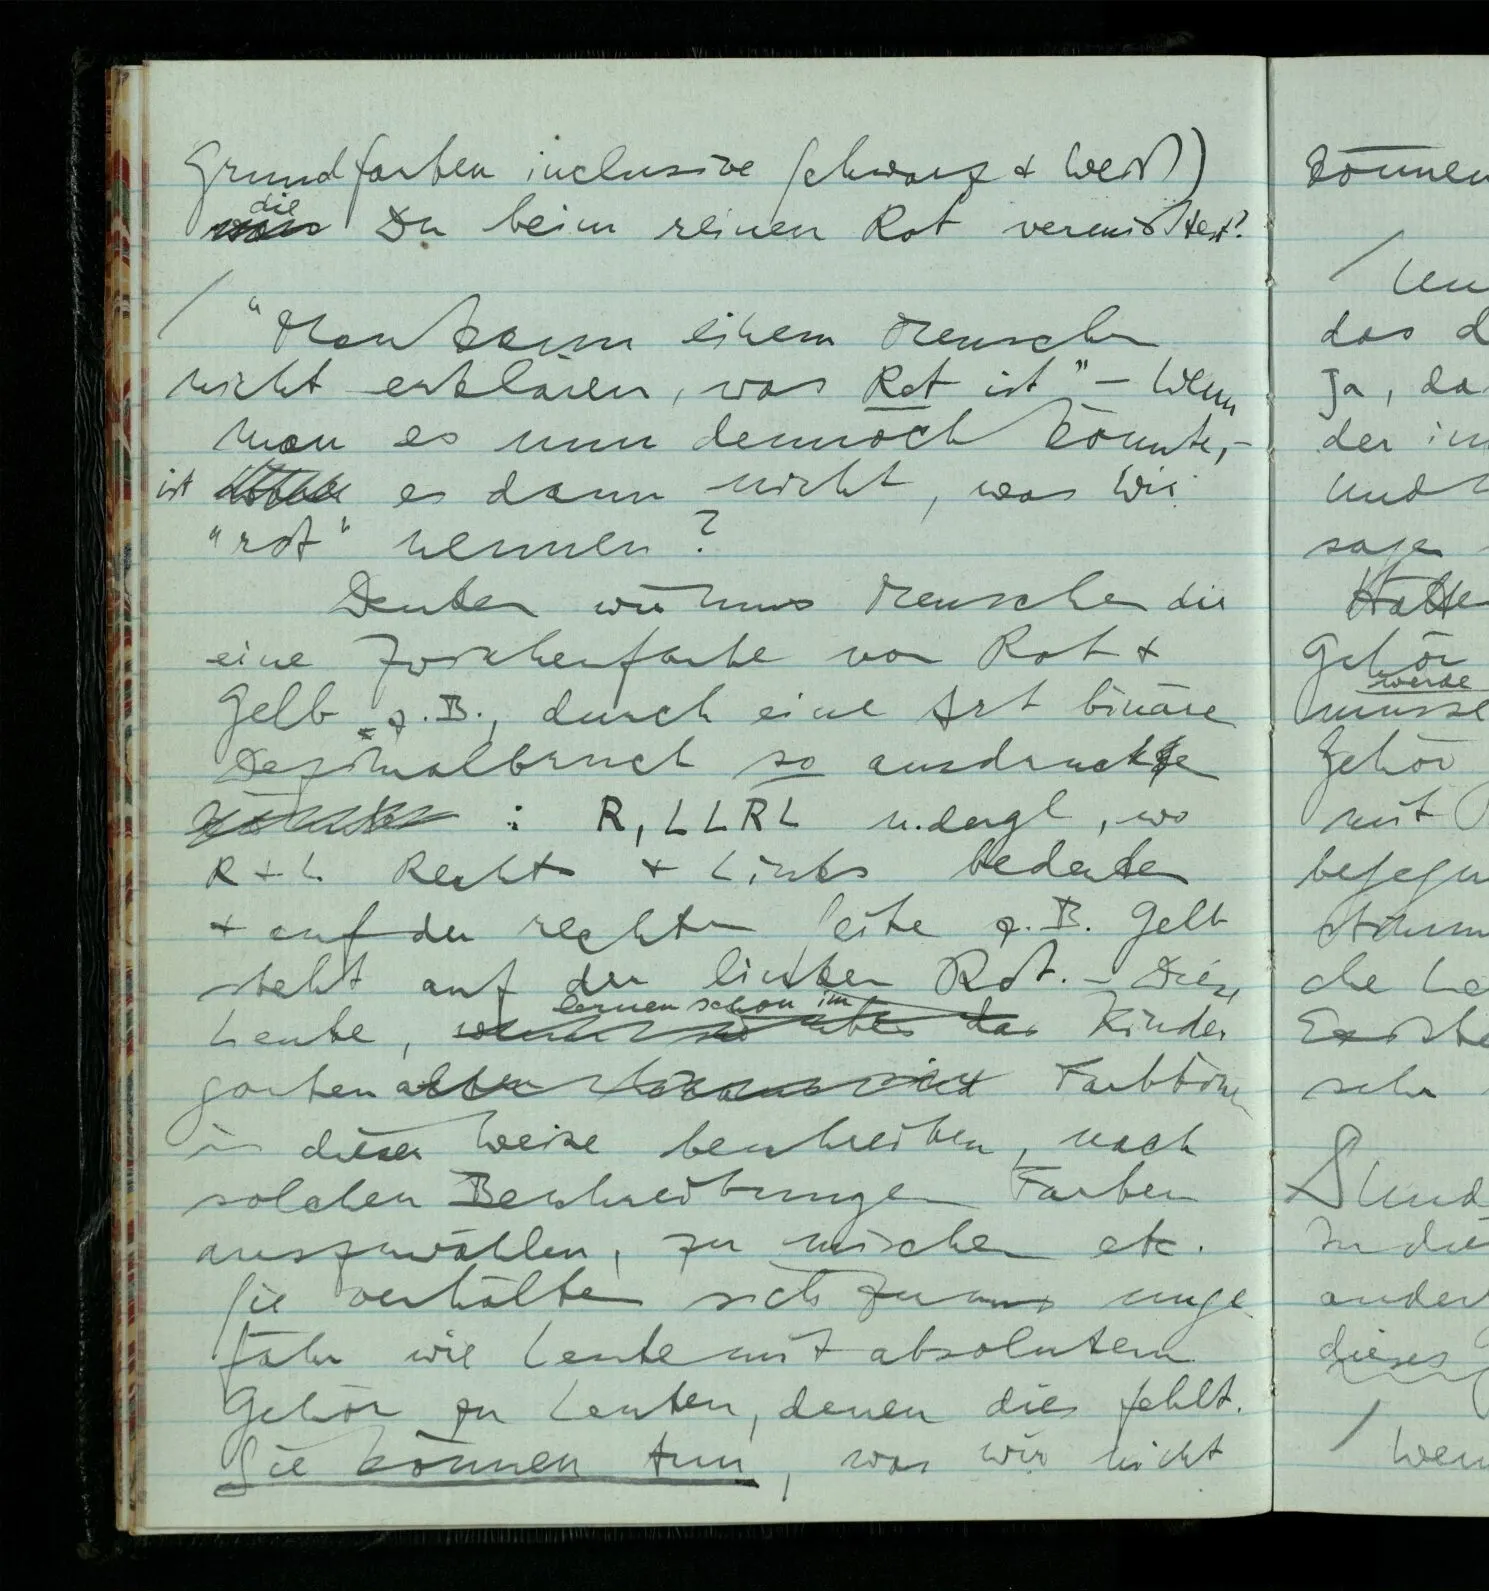 Grundfarben inclusive Schwarz & Weiß)
die
Du beim reinen Rot vermißtest?
/ "Man kann einem Menschen
nicht erklären, was Rot ist" – Wenn
man es nun dennoch könnte, –
ist es dann nicht, was wir
"rot" nennen?
Denken wir uns Menschen die
eine Zwischenfarbe von Rot &
Gelb z.B., durch eine Art binären
Dezimalbruch so ausdrücken
: R, LLRL u.dergl, wo
R & L Rechts & Links bedeuten
& auf der rechten Seite z.B. Gelb
steht auf der linken Rot. – Diese
lernen schon im
Leute, über das Kinder
garten Farbtöne
in dieser Weise beschreiben, nach
solchen Beschreibungen Farben
auszuwählen, zu mischen etc.
Sie verhalten sich zu uns unge
fähr wie Leute mit absolutem
Gehör zu Leuten, denen dies fehlt.
Sie können tun, was wir nicht
können
/
das
Ja,
der
und
sage
Hätte
Gehör
werde
müsse
Gehör
mit
sehr
dieses
/